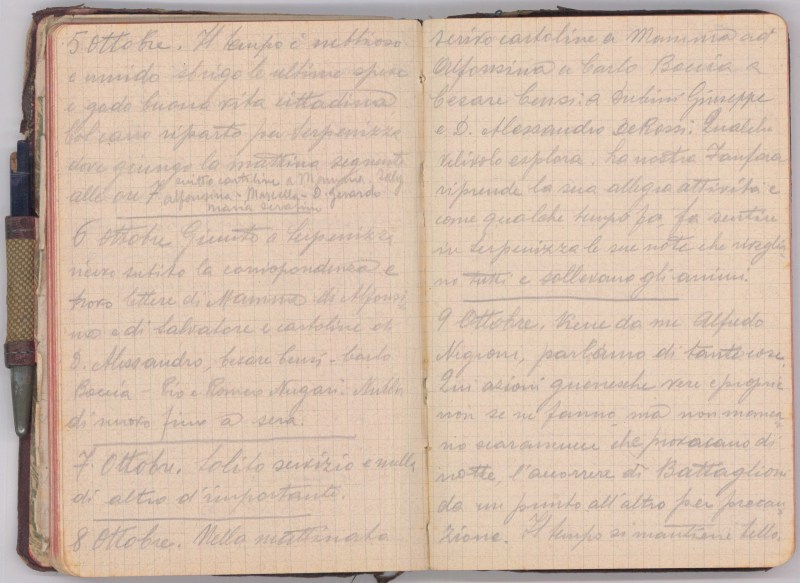 5 Ottobre. Il tempo è nebbioso
e umido sbrigo le ultime spese
e godo buona vita cittadina
Col carro riparto per Serpenizza
dove giungo la mattina seguente
alle ore 7. scritto cartoline a Mamma
Alfonsina - Marcella - D. Gerardo
maria serafini
6 Ottobre Giunto a Serpenizza
ricevo subito la corrispondenza e
trovo lettere di Mamma di Alfonsi
na e di Salvatore e cartoline di
D. Alessandro, Cesare Censi - Carlo
Boccia - Pio e Romeo Nugari. Nulla
di nuovo fino a sera.
7. Ottobre. Solito servizio e nulla
di altro d'importante.
8 Ottobre. Nella mattinata
scrivo cartoline a Mamma ad
Alfonsina a Carlo Boccia a
Cesare Censi: a Giuseppe
e D. Alessandro DeRossi. Qualche
velivolo esplora. La nostra Fanfara
riprende la sua allegra attività e
come qualche tempo fa fa sentire
in Serpenizza le sue note che sveglia
no tutti e sollevano gli animi.
9 Ottobre. Viene da me Alfredo
Nigioni, parliamo di tante cose
Qui azioni guerresche vere e proprie
non se ne fanno ma non manca
no scaramucce che provocano di
notte, l'accorrere di Battaglioni
da un punto all'altro per precau
zione. Il tempo si mantiene bello.